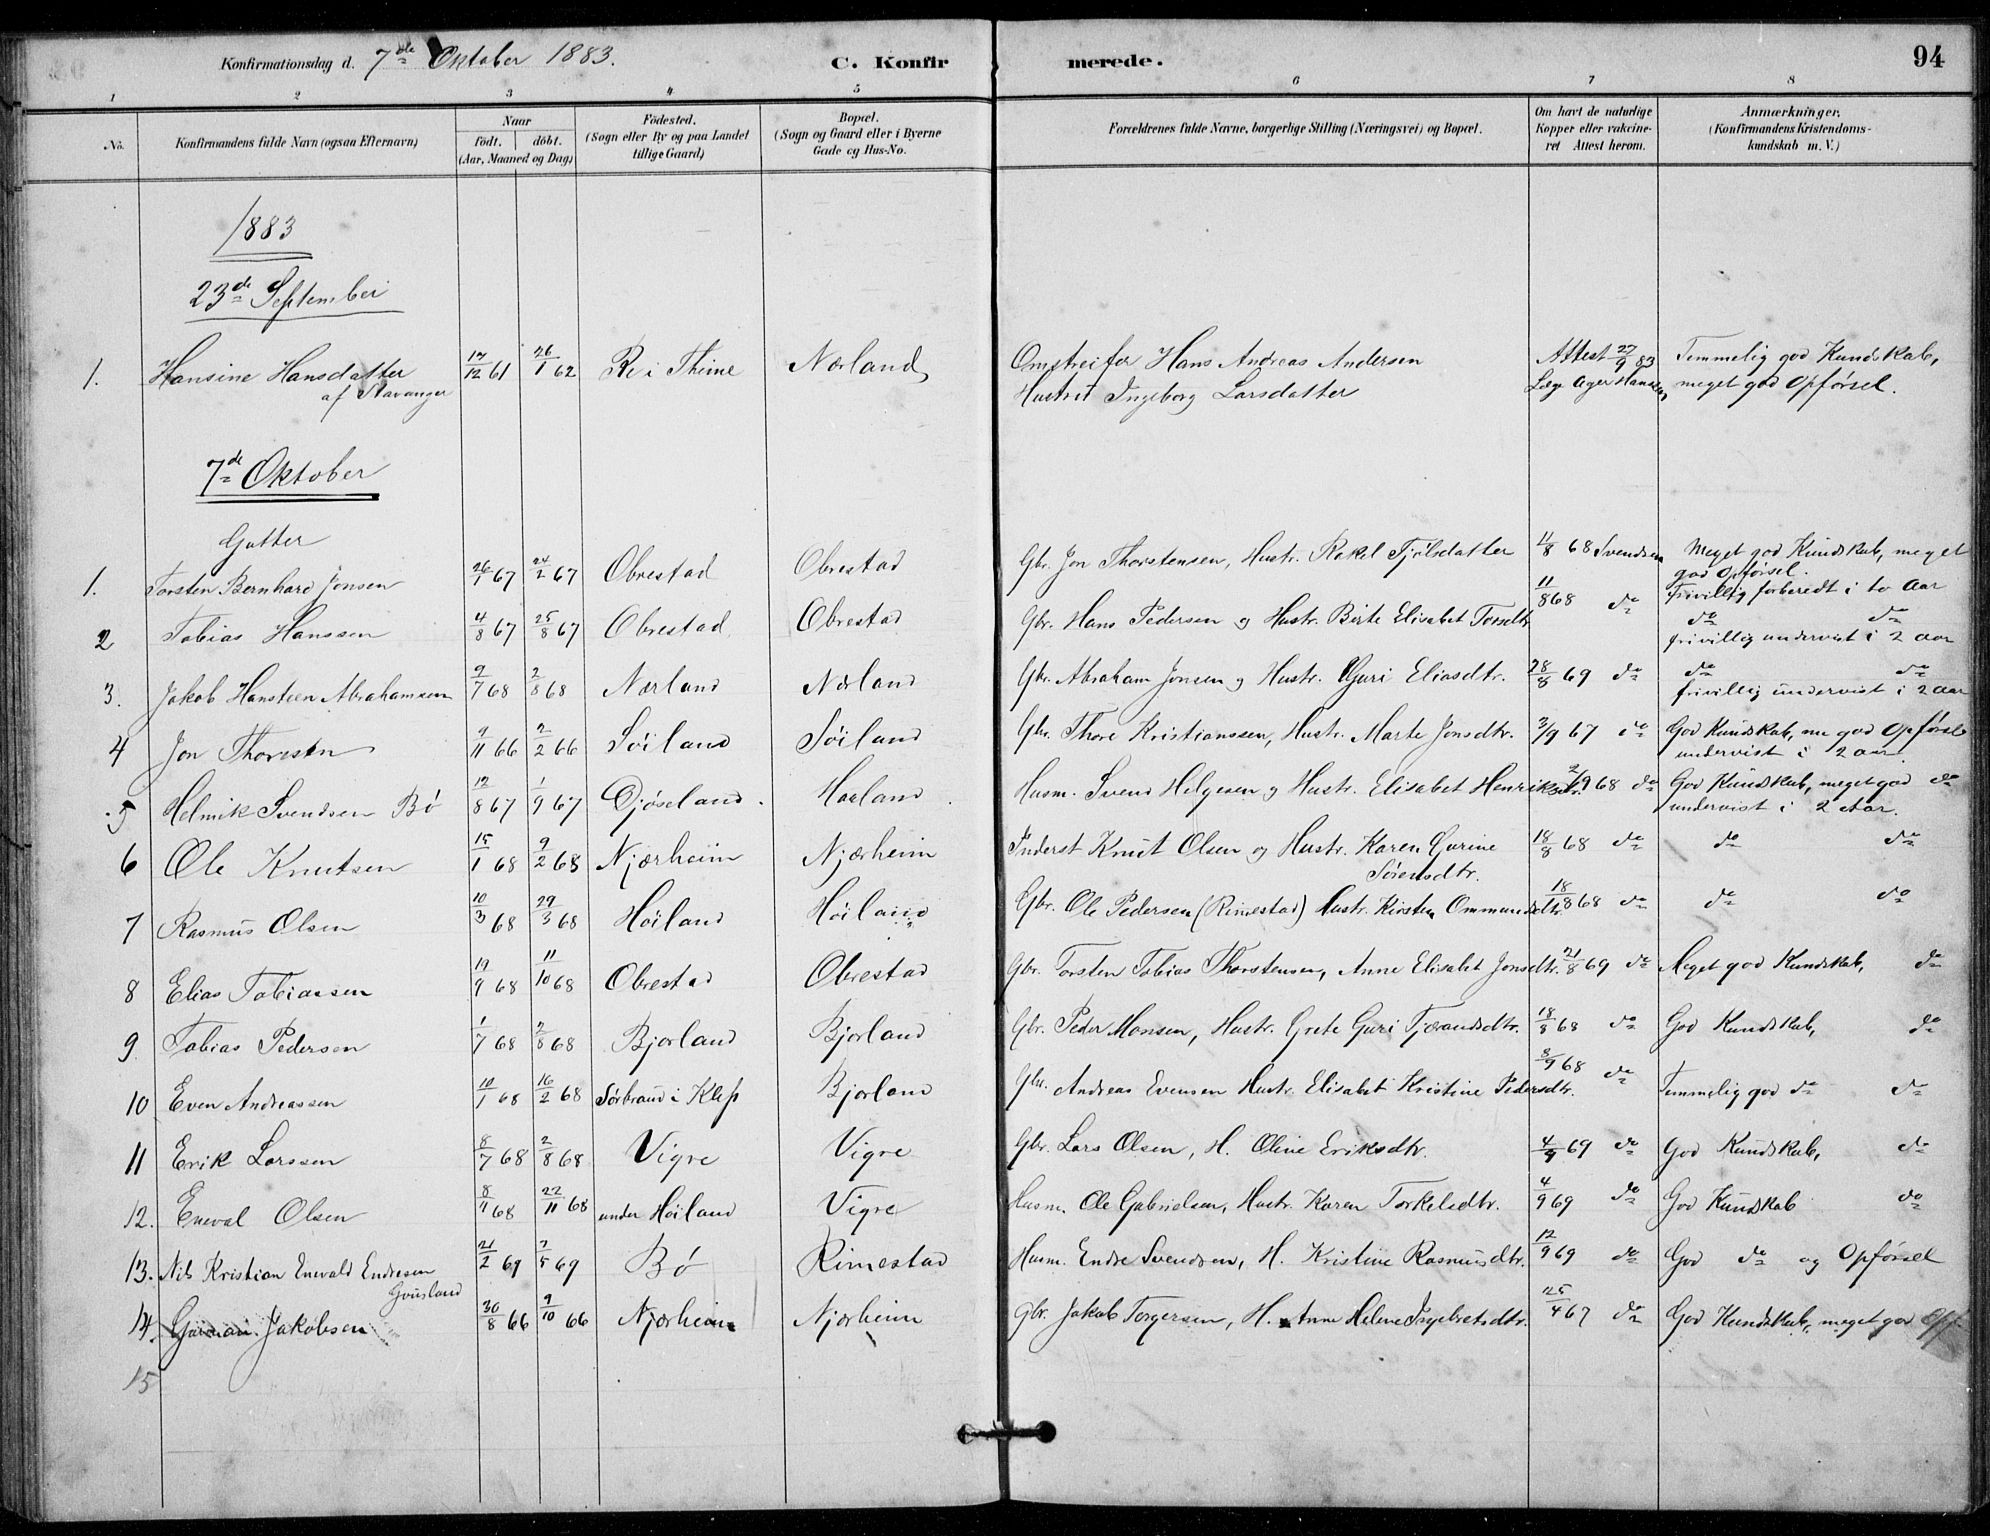 Konfirmationsdag d. 7de Oktober 1883. C. Konfirmerede. 94
1 2 3 4 5 6 7 8
No. Konfirmandens fulde Navn (ogsaa Efternavn) Naar födt. döbt. (Aar, Maaned og Dag) Födested. (Sogn eller By og paa Landet tillige Gaard) Bopæl. (Sogn og Gaard eller i Byerne Gade og Hus-No. Forældrenes fulde Navne, borgerlige Stilling (Næringsvei) og Bopæl. Om havt de naturlige Kopper eller vakcineret Attest herom. Anmærkninger. (Konfirmandens Kristendomskundskab m. V.)
1883
23de September
1. Hansine Hansdatter 17/12 61 26/1 62 Re i Thime Nærland Omstreifer Hans Andreas Andersen Attest 27/9 83 Temmelig god Kundskab,
af Stavanger Hustru Ingeborg Larsdatter Læge Ager Hansen meget god Opførsel.
7de Oktober
Gutter
1. Torsten Bernhard Jonsen 26/1 67 24/2 67 Obrestad Obrestad Gbr. Jon Thorstensen, Hustr. Rakel Tjølsdatter 11/8 68 Svendsen Meget god Kundskab, meget
god Opførsel.
frivillig forberedt i to Aar
2 Tobias Hanssen 4/8 67 25/8 67 Obrestad Obrestad Gbr. Hans Pedersen og Hustr. Birte Elisabet Torsdtr. 11/8 68 do do do
frivillig undervist i 2 aar
3. Jakob Hansteen Abrahamsen 9/7 68 2/8 68 Nærland Nærland Gbr. Abraham Jonsen og Hustr. Guri Eliasdtr. 28/8 69 do do do
frivillig undervist i 2 aar
4 Jon Thoresen 9/11 66 2/2 66 Søiland Søiland Gbr. Thore Kristianssen, Hustr. Marte Jonsdtr. 3/9 67 do God Kundskab, me god Opførsel
undervist i 2 aar
5 Helmik Svendsen Bø 12/8 67 1/9 67 Djøseland. Haaland Husm. Svend Helgesen og Hustr. Elisabet Henriksdtr. 2/9 68 do God Kundskab, meget god do
undervist i 2 Aar.
6 Ole Knutsen 15/1 68 9/2 68 Njærheim Njærheim Inderst Knut Olsen og Hustr. Karen Gurine 18/8 68 do do do
Sørensdtr.
7 Rasmus Olsen 10/3 68 29/3 68 Høiland Høiland Gbr. Ole Pedersen (Rimestad) Hustr. Kirsten Ommundsdtr. 18/8 68 do do do
8 Elias Tobiassen 19/9 68 11/10 68 Obrestad Obrestad Gbr. Torsten Tobias Thorstensen, Anne Elisabet Jonsdtr. 21/8 69 do Meget god Kundskab, do
9 Tobias Pedersen 1/7 68 2/8 68 Bjorland Bjorland Gbr. Peder Monsen, Hustr. Grete Guri Tjærandsdtr. 18/8 68 do God Kundskab, do
10 Even Andreassen 10/1 68 16/2 68 Sørbraud i Klep Bjorland Gbr. Andreas Evensen Hustr. Elisabet Kristine Pedersdtr. 3/9 68 do Temmelig god do do
11 Erik Larssen 8/7 68 2/8 68 Vigre Vigre Gbr. Lars Olsen, H. Oline Eriksdtr. 4/9 69 do God Kundskab, do
12. Eneval Olsen 8/11 68 22/11 68 under Høiland Vigre Husm. Ole Gabrielsen, Hustr. Karen Torkelsdtr. 4/9 69 do God Kundskab do
13. Nils Kristian Enevald Endresen 21/2 69 2/5 69 Bø Rimestad Husm. Endre Svendsen, H. Kristine Rasmusdtr. 12/9 69 do God do og Opførsel
Grusland
14. Jakobsen 30/8 66 9/10 66 Njærheim Njærheim Gbr. Jakob Torgersen, H. Anne Helene Ingebretsdtr. 25/4 67 do God Kundskab, meget god Opf.
15